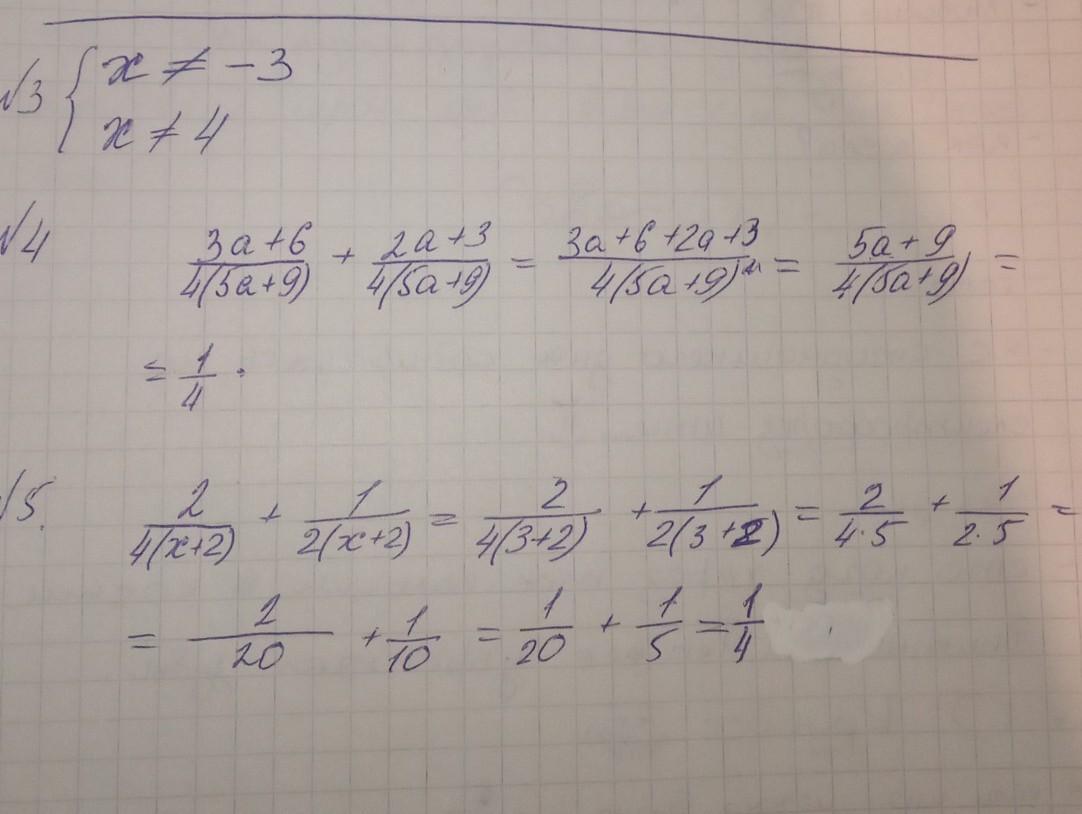 №3 { x ≠ -3
x ≠ 4
№4 (3a+6)/(4(5a+9)) + (2a+3)/(4(5a+9)) = (3a+6+2a+3)/(4(5a+9)) = (5a+9)/(4(5a+9)) =
= 1/4.
№5. 2/(4(x+2)) + 1/(2(x+2)) = 2/(4(3+2)) + 1/(2(3+2)) = 2/(4·5) + 1/(2·5) =
= 2/20 + 1/10 = 1/20 + 1/5 = 1/4